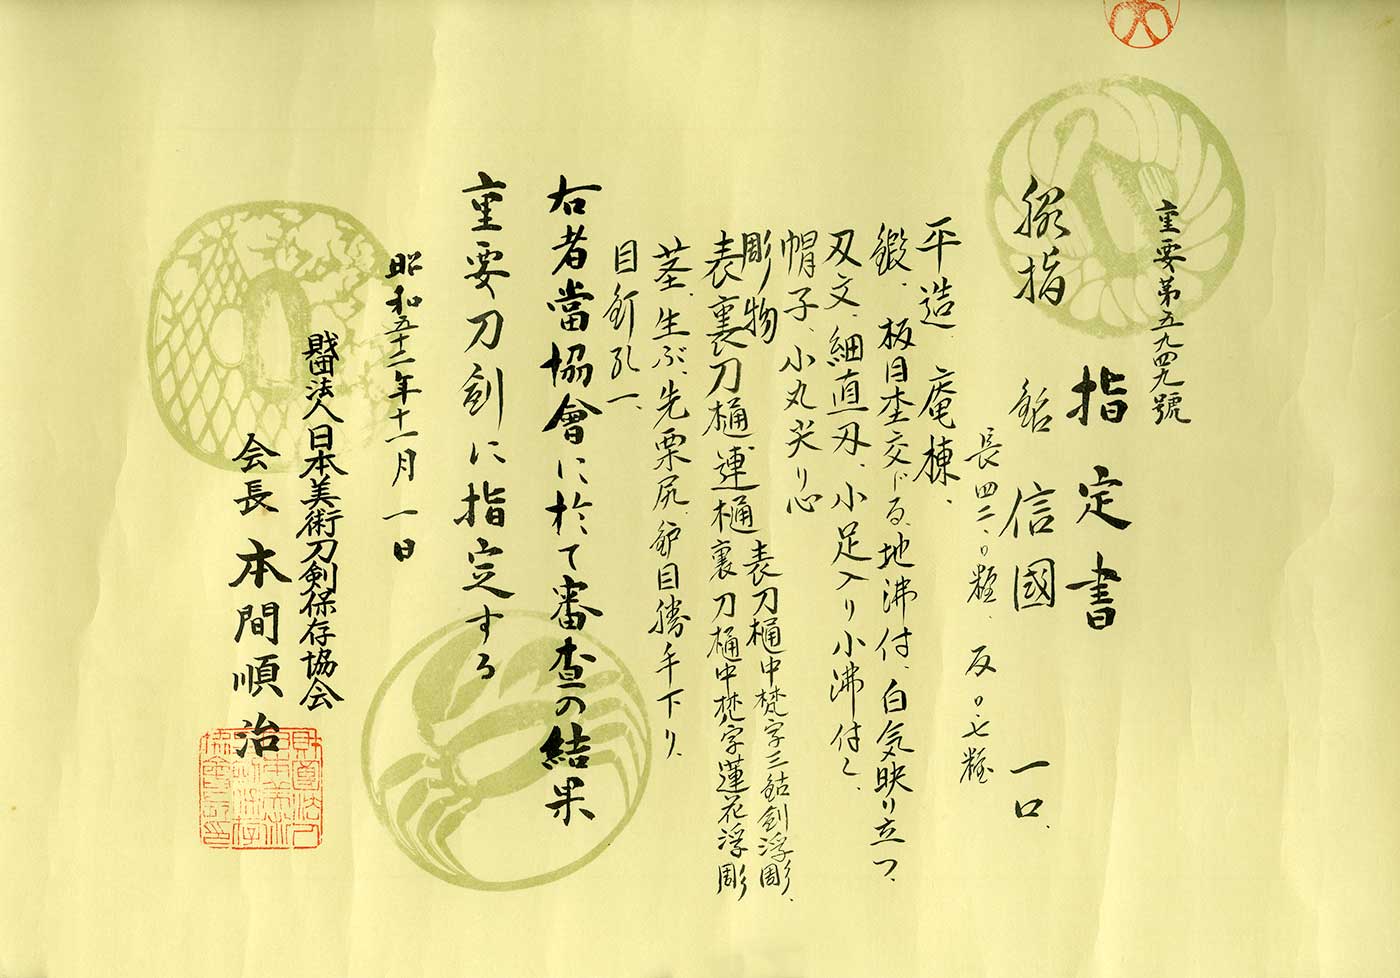 重要第五九四九號
指定書
脇指 銘 信國 一口
長四二、〇糎、反〇、七糎
平造、庵棟、
鍛、板目杢交じる、地沸付、白気映り立つ、
刃文、細直刃、小足入り小沸付く、
帽子、小丸尖り心
彫物 表刀樋中梵字三鈷剣浮彫、
表裏刀樋連樋 裏刀樋中梵字蓮花浮彫
茎、生ぶ、先栗尻、鑢目勝手下り、
目釘孔一、
右者當協會に於て審査の結果
重要刀剣に指定する
昭和五十二年十一月一日
財団法人日本美術刀剣保存協会
会長 本間順治